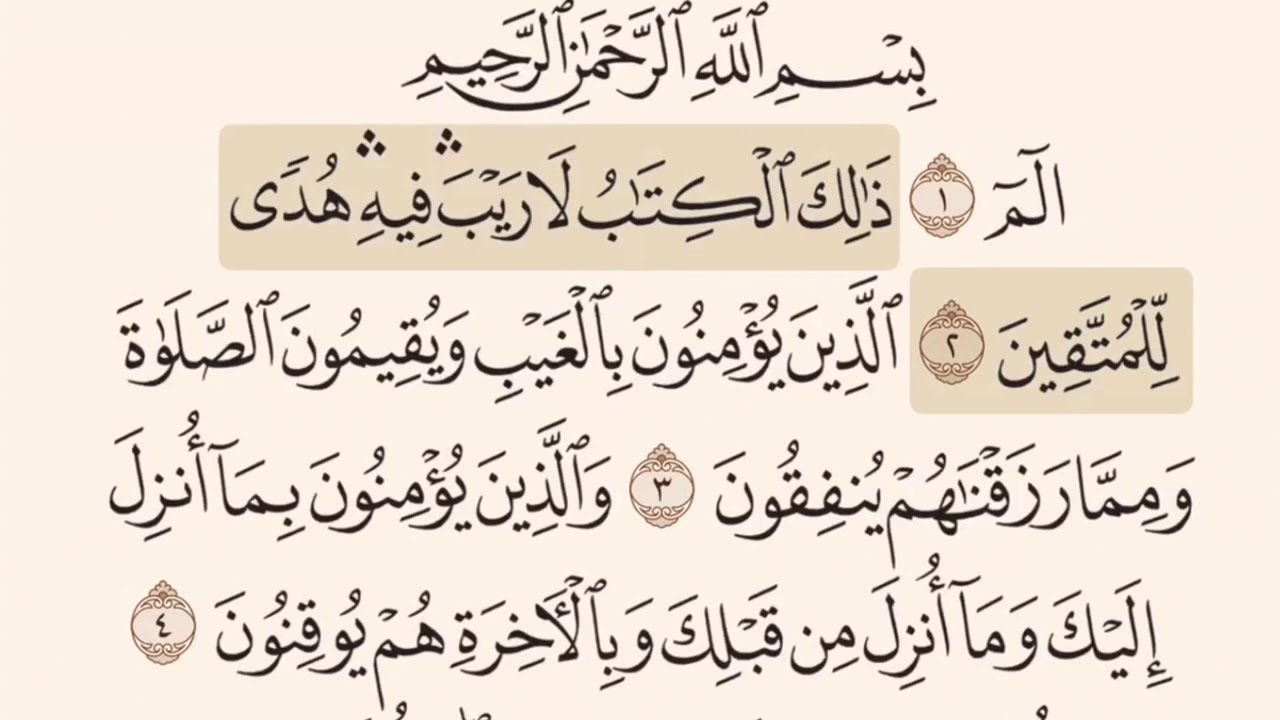 بِسْمِ ٱللَّهِ ٱلرَّحْمَٰنِ ٱلرَّحِيمِ
الٓمٓ ١ ذَٰلِكَ ٱلْكِتَٰبُ لَا رَيْبَ ۛ فِيهِ ۛ هُدًى
لِّلْمُتَّقِينَ ٢ ٱلَّذِينَ يُؤْمِنُونَ بِٱلْغَيْبِ وَيُقِيمُونَ ٱلصَّلَوٰةَ
وَمِمَّا رَزَقْنَٰهُمْ يُنفِقُونَ ٣ وَٱلَّذِينَ يُؤْمِنُونَ بِمَآ أُنزِلَ
إِلَيْكَ وَمَآ أُنزِلَ مِن قَبْلِكَ وَبِٱلْأَخِرَةِ هُمْ يُوقِنُونَ ٤